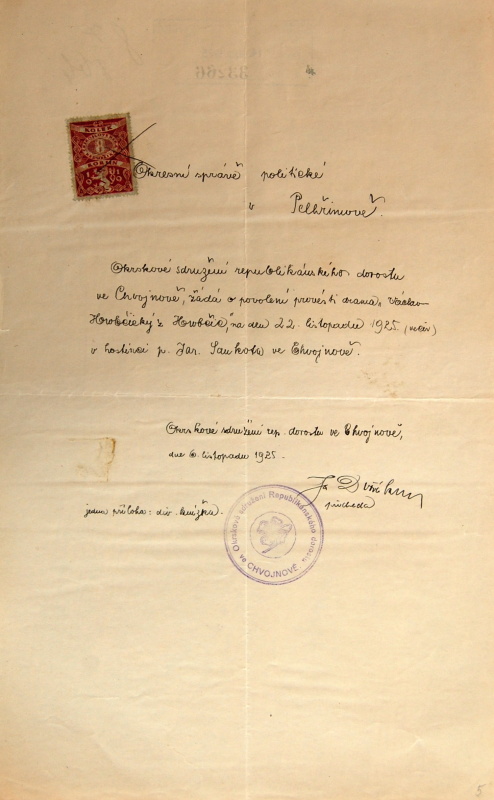 33266
KOLEK
8
KORUN
1919
Okresní správě politické
v Pelhřimově.
Okrskové sdružení republikánského dorostu
ve Chvojnově, žádá o povolení provésti drama, „Václav
Hrobčický z Hrobčic“, na den 22. listopadu 1925. (večer)
v hostinci p. Jar. Saukota ve Chvojnově.
Okrskové sdružení rep. dorostu ve Chvojnově,
dne 6. listopadu 1925.
předseda
jedna příloha: div. knížka.
Okrskové sdružení Republikánského dorostu
ve CHVOJNOVĚ.
5